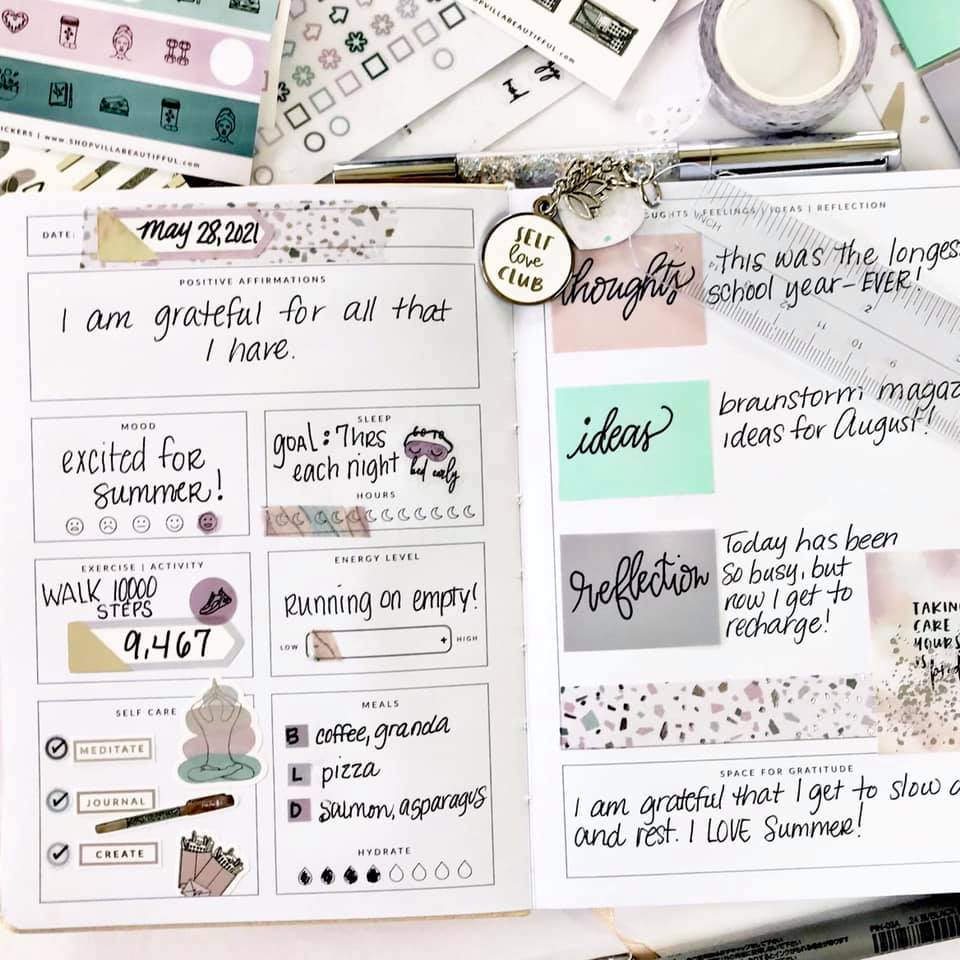 SHOPVILLABEAUTIFFUL.com
STICKERS | WWW.SHOPVILLABEAUTIFFUL.com
DATE:
May 28, 2021
POSITIVE AFFIRMATIONS
I am grateful for all that
I have.
MOOD
excited for
summer!
SLEEP
GOAL: 7hrs
each night
GO TO
bed early
HOURS
EXERCISE | ACTIVITY
WALK 10000
STEPS
9,467
ENERGY LEVEL
Running on empty!
LOW
- +
HIGH
SELF CARE
MEDITATE
JOURNAL
CREATE
MEALS
B coffee, granola
L pizza
D salmon, asparagus
HYDRATE
SELF
love
CLUB
THOUGHTS | FEELINGS | IDEAS | REFLECTION
INCH
thoughts
this was the longes
school year - EVER!
ideas
brainstorm magaz
ideas for August!
reflection
Today has been
so busy, but
now I get to
recharge!
TAKING
CARE
YOURS
is
SPACE FOR GRATITUDE
I am grateful that I get to slow d
and rest. I LOVE Summer!